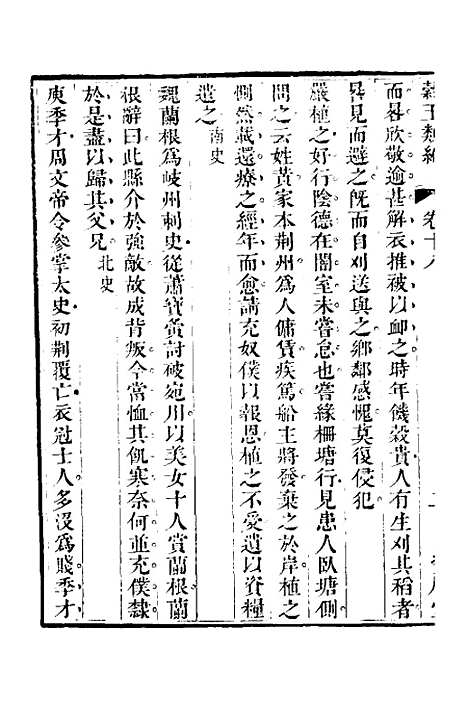 卷十八
而畧欣敬逾甚解衣推被以卹之時年饑穀貴人有生刈其稻者
畧見而避之旣而自刈送與之鄉鄰感愧莫復侵犯
嚴植之好行陰德在闇室未嘗怠也嘗緣柵塘行見患人臥塘側
問之云姓黃家本荆州爲人傭賃疾篤船主將發棄之於岸植之
惻然載還療之經年而愈請充奴僕以報恩植之不受遺以資糧
遣之南史
魏蘭根爲岐州刺史從蕭寶夤討破宛川以美女十人賞蘭根蘭
根辭曰此縣介於強敵故成背叛今當恤其飢寒奈何並充僕隸
於是盡以歸其父兄北史
庾季才周文帝令參掌太史初荆覆亡衣冠士人多沒爲賤季才